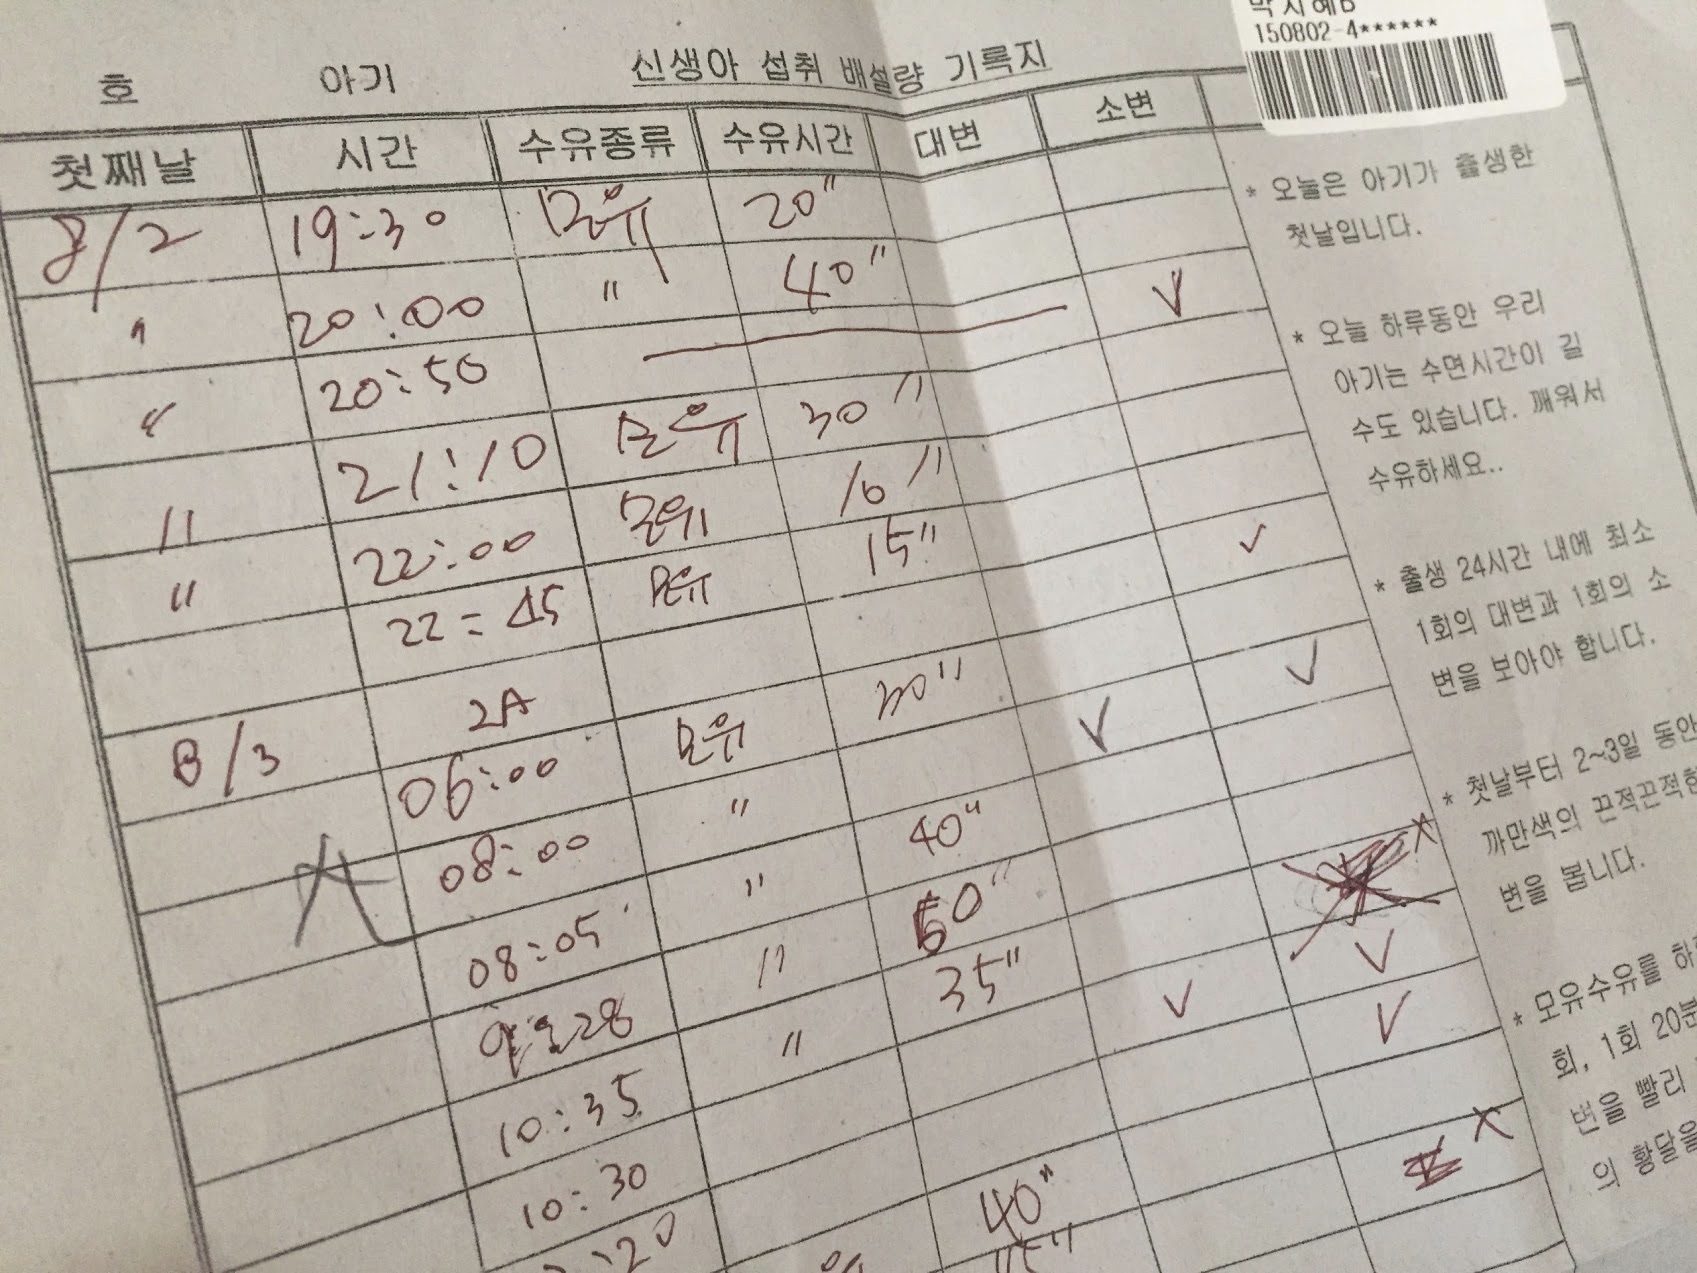 150802-4******
호 아기 신생아 섭취 배설량 기록지
첫째날 시간 수유종류 수유시간 대변 소변
8/2 19:30 모유 20"
" 20:00 " 40"
" 20:50 V
" 21:10 모유 30"
" 22:00 모유 10"
22:45 모유 15" V
8/3
06:00 모유 30" V
08:00 " V
08:05 " 40"
" 50"
10:35 " 35" V V
10:30 V
:20 40"
* 오늘은 아기가 출생한
첫날입니다.
* 오늘 하루동안 우리
아기는 수면시간이 길
수도 있습니다. 깨워서
수유하세요..
* 출생 24시간 내에 최소
1회의 대변과 1회의 소
변을 보아야 합니다.
* 첫날부터 2~3일 동안
까만색의 끈적끈적한
변을 봅니다.
* 모유수유를 하
회, 1회 20분
변을 빨리
의 황달을